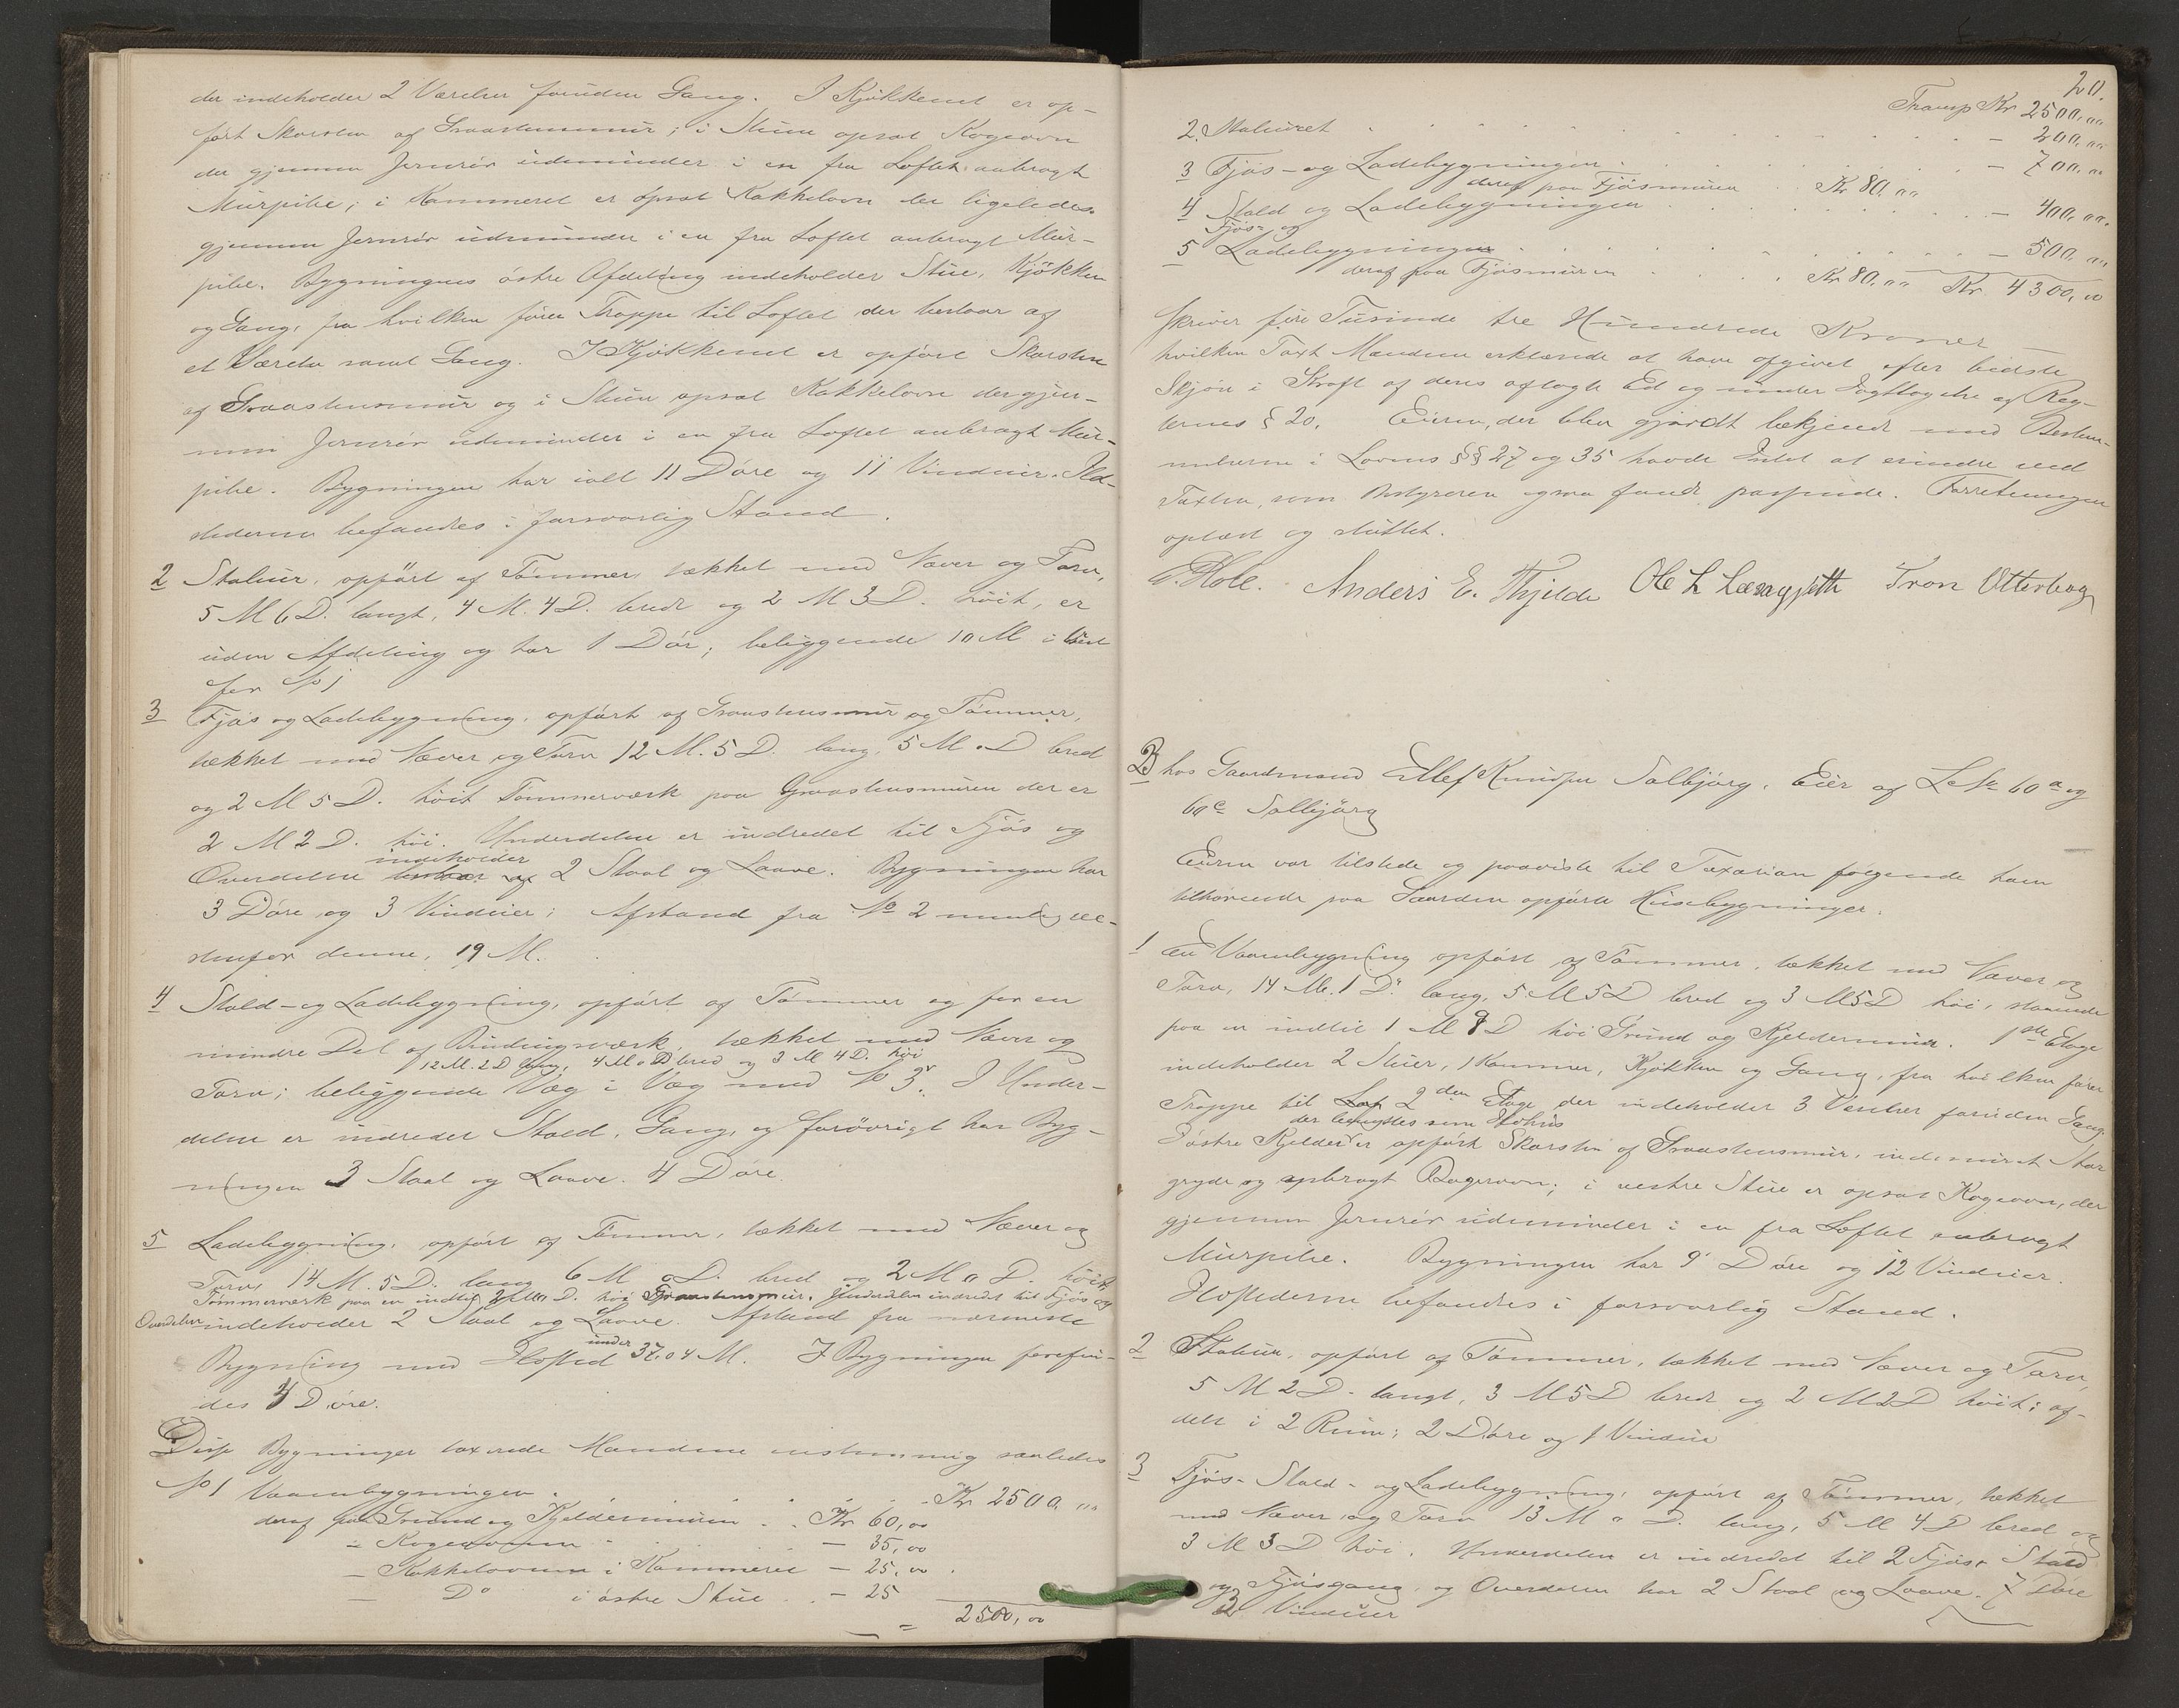 der indeholder 2 Værelser foruden Gang. I Kjøkkenet er op-
ført Skorsten af Graastensmur; i Stuen opsat Kogeovn
der gjennem Jernrör udmunder i en fra Loftet anbragt
Murpibe; i Kammeret er opsat Kakkelovn der ligeledes
gjennem Jernrör udmunder i en fra Loftet anbragt Mur-
pibe. Bygningens östre Afdeling indeholder Stue, Kjökken
og Gang, fra hvilken fører Trappe til Loftet der bestaar af
et Værelse samt Gang. I Kjøkkenet er opført Skorsten
af Graastensmur og i Stuen opsat Kakkelovn der gjen-
nem Jernrör udmunder i en fra Loftet anbragt Mur-
pibe. Bygningen har ialt 11 Döre og 11 Vinduer. Ild-
stederne befandtes i forsvarlig Stand.
2 Stabur, opført af Tømmer, tækket med Næver og Torv,
5 M 6 D. langt, 4 M. 4 D. bredt og 2 M 3 D. höit, er
uden Afdeling og har 1 Dör; beliggende 10 M i
for No 1
3 Fjös og Ladebygning, opført af Graastensmur og Tömmer,
tækket med Næver og Torv 12 M. 5 D. lang, 5 M. " D bred
og 2 M 5 D. höit Tømmerværk paa Graastensmuren der er
2 M 2 D. höi. Underdelen er indredet til Fjös og
indeholder
Overdelen bestaar af 2 Staal og Laave. Bygningen har
3 Döre og 3 Vinduer; Afstand fra No 2
stenfor denne, 19 M.
4 Stald- og Ladebygning, opført af Tømmer og for en
mindre Del af Bindingsværk, tækket med Næver og
12 M. 2 D lang, 4 M " D bred og 3 M 4 D. höi
Torv; beliggende Væg i Væg med No 3. I Under-
delen er indredet Stald, Gang, og forövrigt har Byg-
ningen 3 Staal og Laave. 4 Döre.
5 Ladebygning, opført af Tømmer, tækket med Næver og
Torv, 14 M. 5 D. lang 6 M " D. bred og 2 M " D. höit
Tömmerværk paa en indtil 2 M " D. höi Graastensmur. Underdelen indredet til Fjös og
Overdelen indeholder 2 Staal og Laave. Afstand fra nærmeste
under
Bygning med Ildsted 37,04 M. I Bygningen forefin-
des 4 Döre.
Disse Bygninger taxerede Mændene enstemmig saaledes
No 1 Vaanbygningen . . . . Kr 2500,00
deraf paa Grund og Kjeldermuren . . Kr 60,00
- Kogeovnen - 35,00
- Kakkelovnen i Kammeret - 25,00
- Do i östre Stue . . - 25
2500,00
20.
Transp Kr 2500,00
2. Staburet . . . . - 200,00
3 Fjös- og Ladebygningen . . . - 700,00
deraf paa Fjösmuren Kr 80,00
4 Stald og Ladebygningen . . . - 400,00
Fjös- og
5 Ladebygningen . . . - 500,00
deraf paa Fjösmuren . . Kr 80,00 Kr 4300,00
Skriver fire Tusinde tre Hundrede Kroner
hvilken Taxt Mændene erklærede at have afgivet efter bedste
Skjøn i Kraft af deres aflagte Ed og under Iagttagelse af Reg-
lernes § 20. Eieren, der blev gjordt bekjendt med Bestem-
melserne i Lovens §§ 27 og 35 havde Intet at erindre ved
Taxten, som Bestyreren ogsaa fandt passende. Forretningen
oplæst og sluttet.
Hole. Anders E. Thjelde Ole L Læragjett Tron Otterberg
B hos Gaardmand Ellef Knudsen Solbjörg, Eier af L No 60 a og
60 c Solbjörg
Eieren var tilstede og paaviste til Taxation følgende ham
tilhørende paa Gaarden opførte Husebygninger.
1 En Vaanbygning opført af Tømmer, tækket med Næver og
Torv, 14 M. 1 D. lang, 5 M 5 D bred og 3 M 5 D höi, staaende
paa en indtil 1 M 8 D höi Grund og Kjeldermur. 1ste Etage
indeholder 2 Stuer, 1 Kammer, Kjökken og Gang, fra hvilken fører
Trappe til Lof 2den Etage der indeholder 3 Værelser foruden Gang.
der benyttes som Ildhus
I östre Kjelder er opført Skorsten af Graastensmur, indemuret Stor
gryde og anbragt Bagerovn; i vestre Stue er opsat Kogeovn, der
gjennem Jernrör udmunder i en fra Loftet anbragt
Murpibe. Bygningen har 9 Döre og 12 Vinduer.
Ildstederne befandtes i forsvarlig Stand.
2 Stabur, opført af Tömmer, tækket med Næver og Torv,
5 M 2 D. langt, 3 M 5 D bredt og 2 M 2 D höit; af-
delt i 2 Rum; 2 Döre og 1 Vindue
3 Fjös- Stald- og Ladebygning, opført af Tömmer, tækket
med Næver og Torv 13 M " D. lang, 5 M 4 D bred og
3 M 3 D höi. Underdelen er indredet til 2 Fjös, Stald
og Fjösgang, og Overdelen har 2 Staal og Laave. 7 Döre
3 Vinduer